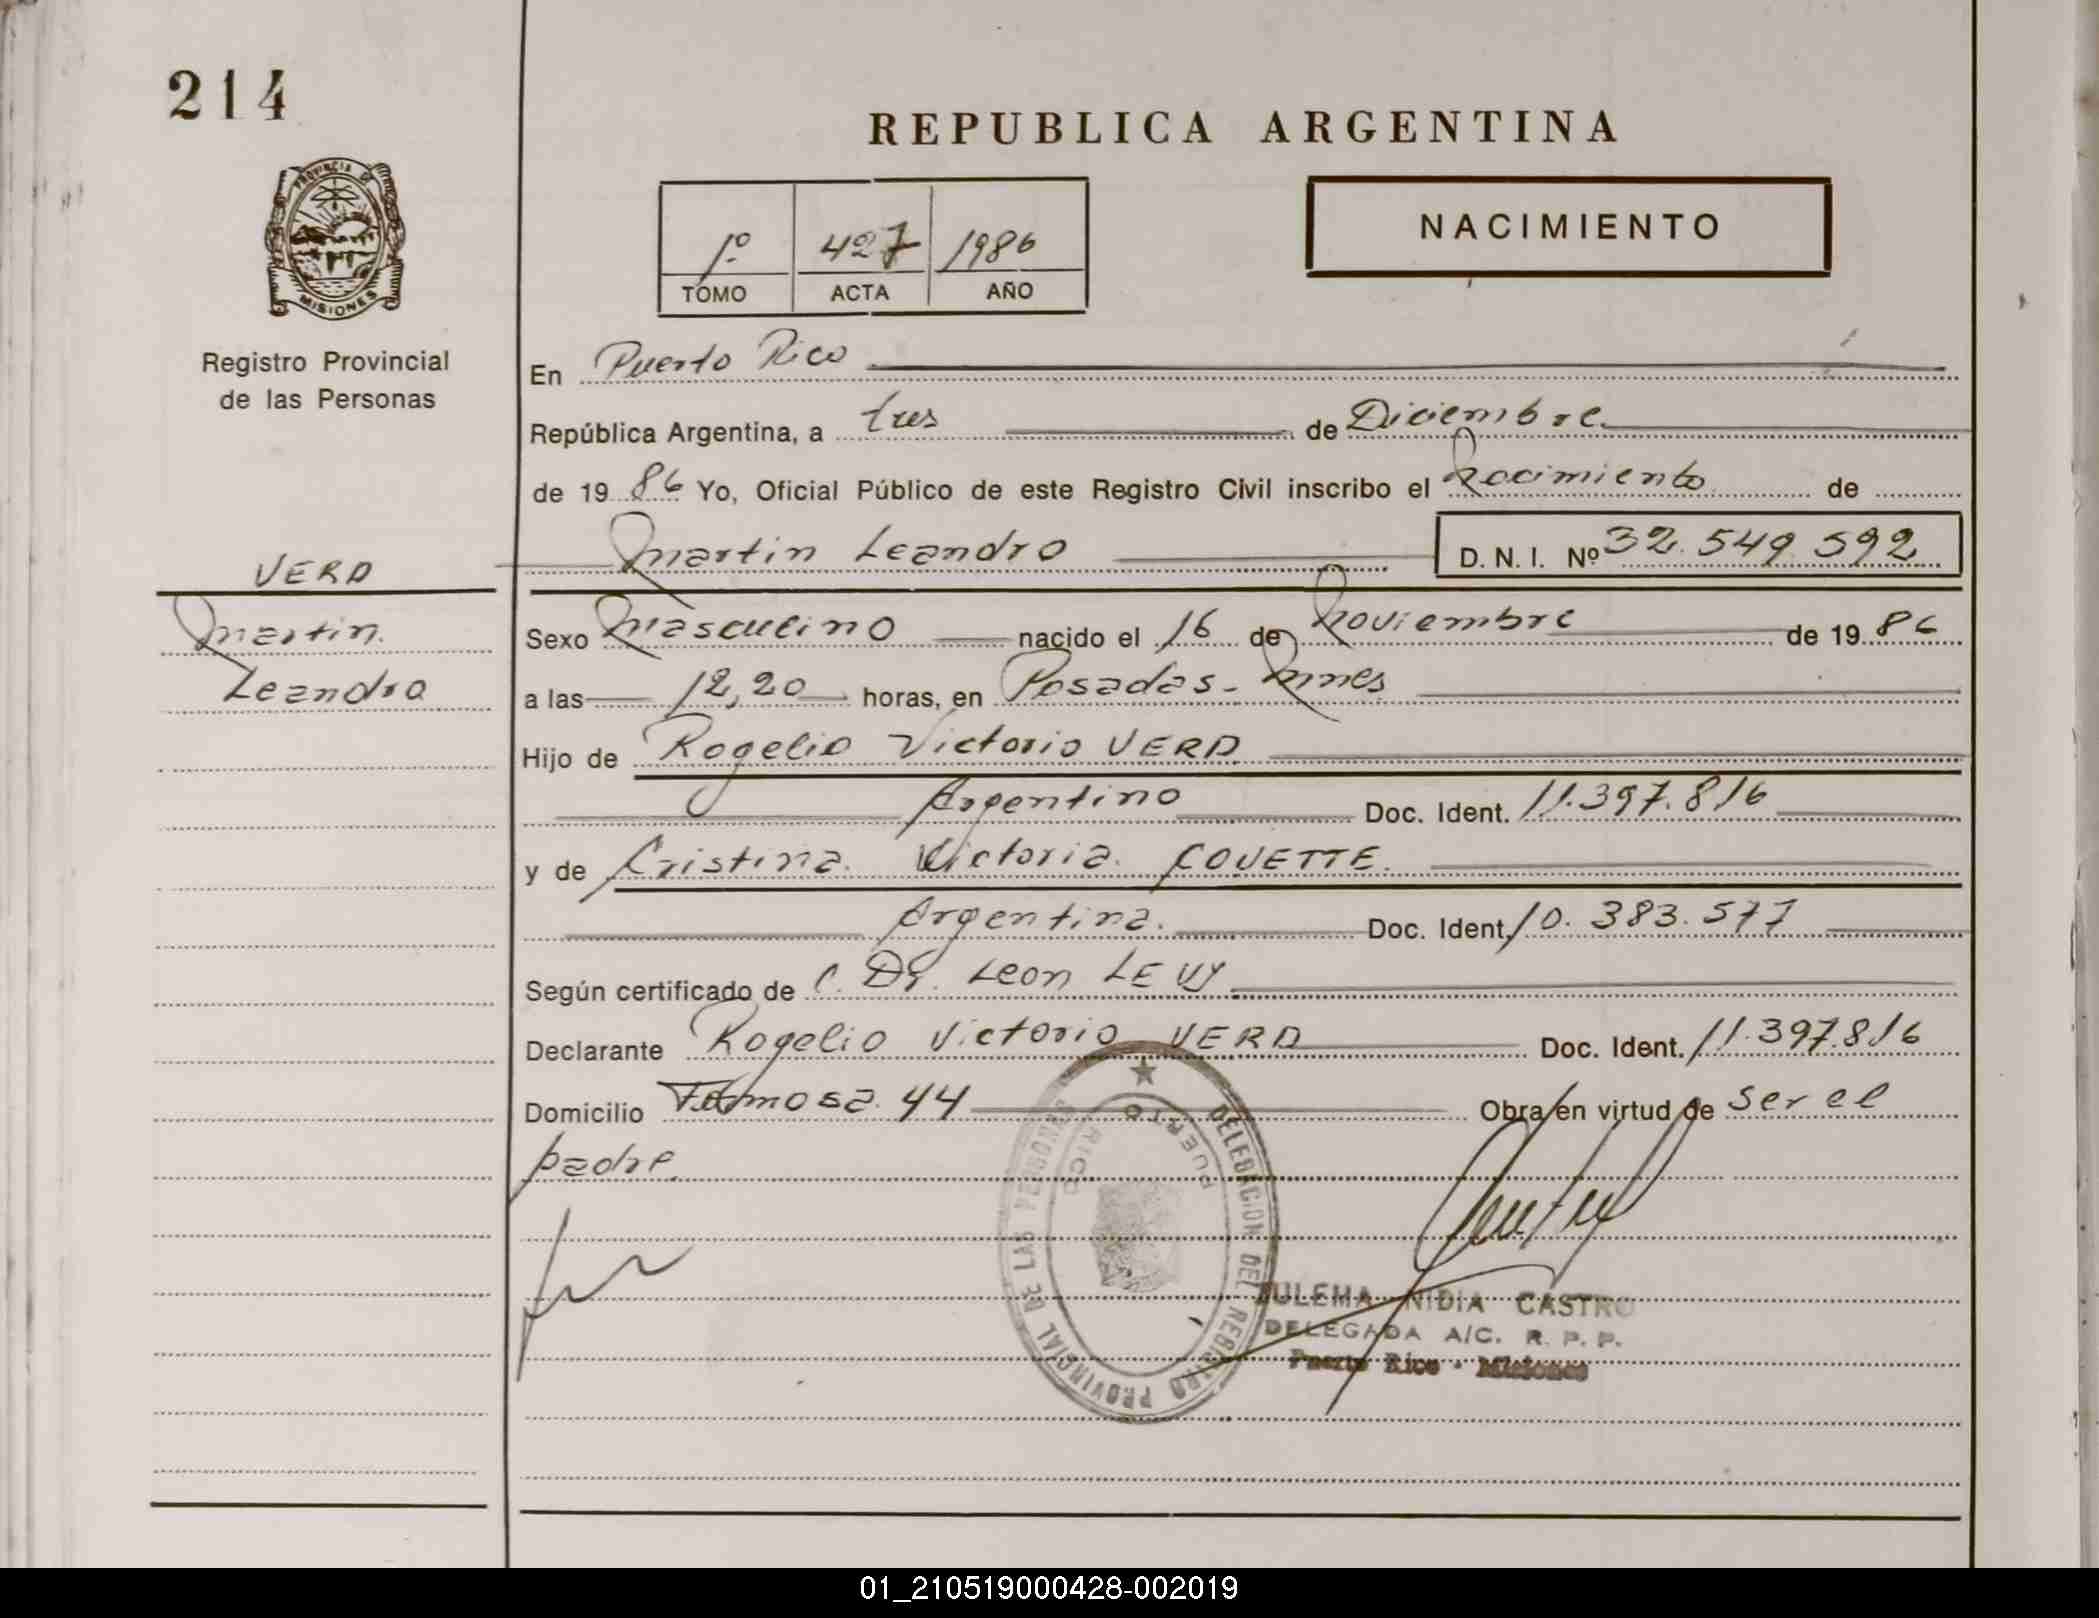 214
REPUBLICA ARGENTINA
PROVINCIA DE
MISIONES
Registro Provincial
de las Personas
1º 427 1986
TOMO ACTA AÑO
NACIMIENTO
En Puerto Rico
República Argentina, a tres de Diciembre
de 19 86 Yo, Oficial Público de este Registro Civil inscribo el Nacimiento de
VERD
Martin
Leandro
Martin Leandro D. N. I. Nº 32.549.592
Sexo Masculino nacido el 16 de Noviembre de 19 86
a las 12,20 horas, en Posadas - Mnes
Hijo de Rogelio Victorio VERD
Argentino Doc. Ident. 11.397.816
y de Cristina Victoria COUETTE.
Argentina. Doc. Ident. 10.383.577
Según certificado de C. Dr. Leon LEVY
Declarante Rogelio Victorio VERD Doc. Ident. 11.397.816
Domicilio Formosa 44 Obra en virtud de ser el
padre.
DELEGACION DEL REGISTRO PROVINCIAL DE LAS PERSONAS
PUERTO RICO
ZULEMA NIDIA CASTRO
DELEGADA A/C. R. P. P.
Puerto Rico - Misiones
01_210519000428-002019